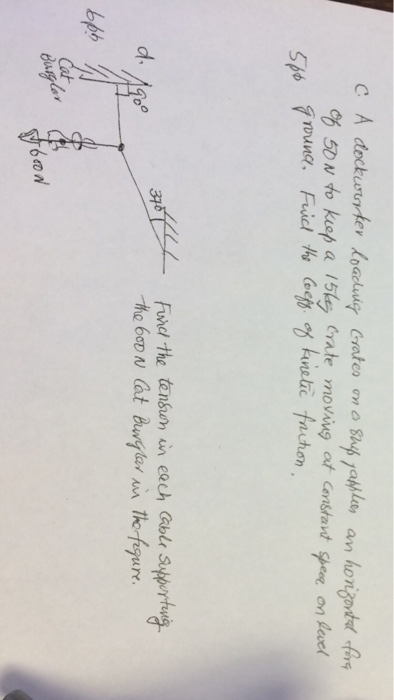 C. A dockworker loading crates on a ship applies an horizontal force
of 50N to keep a 15kg crate moving at constant speed on level
5pts ground. Find the coeff. of kinetic friction.
d. 90° 37° Find the tension in each cable supporting
6pts the 600 N Cat Burglar in the figure.
Cat
Burglar
600N